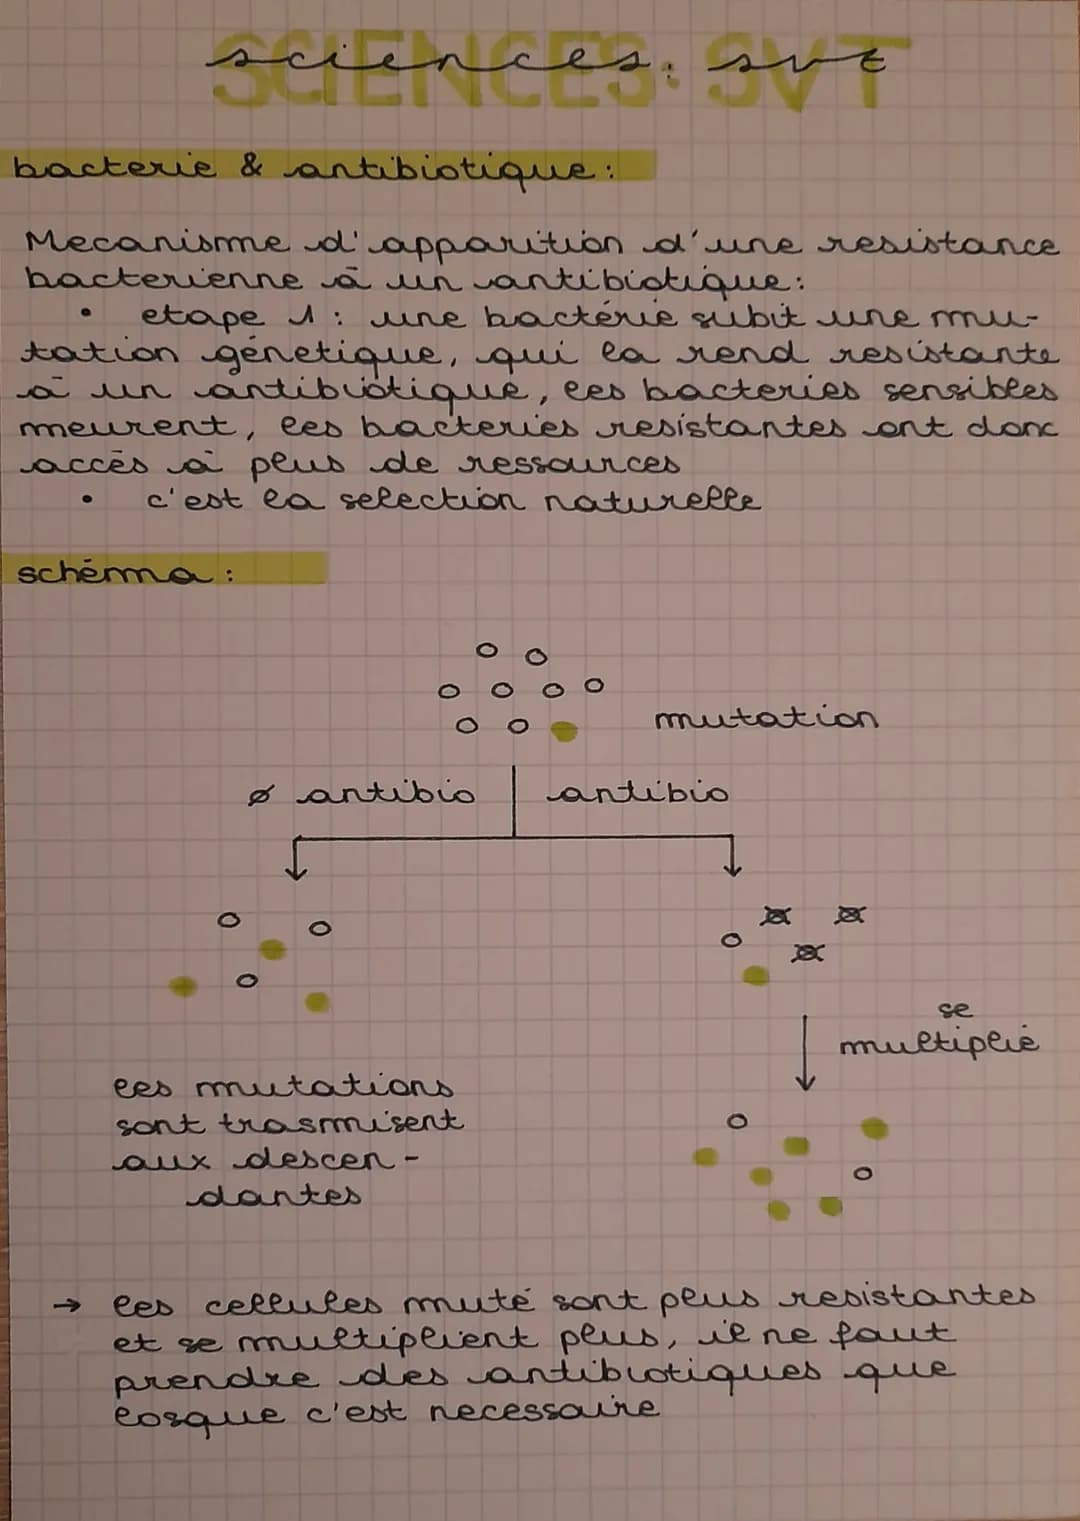 SCIENCES: SVT
sciences: svt
bacterie & antibiotique:
Mecanisme d'apparition d'une resistance
bacterienne à un antibiotique:
• etape 1: une bactérie subit une mu-
tation génetique, qui la rend resistante
à un antibiotique, les bacteries sensibles
meurent, les bacteries resistantes ont donc
accès à plus de ressources
• c'est la selection naturelle
schéma:
mutation
ø antibio
antibio
se
multiplié
les mutations
sont trasmisent
aux descen-
dantes
→ les cellules muté sont plus resistantes
et se multiplient plus, il ne faut
prendre des antibiotiques que
losque c'est necessaire